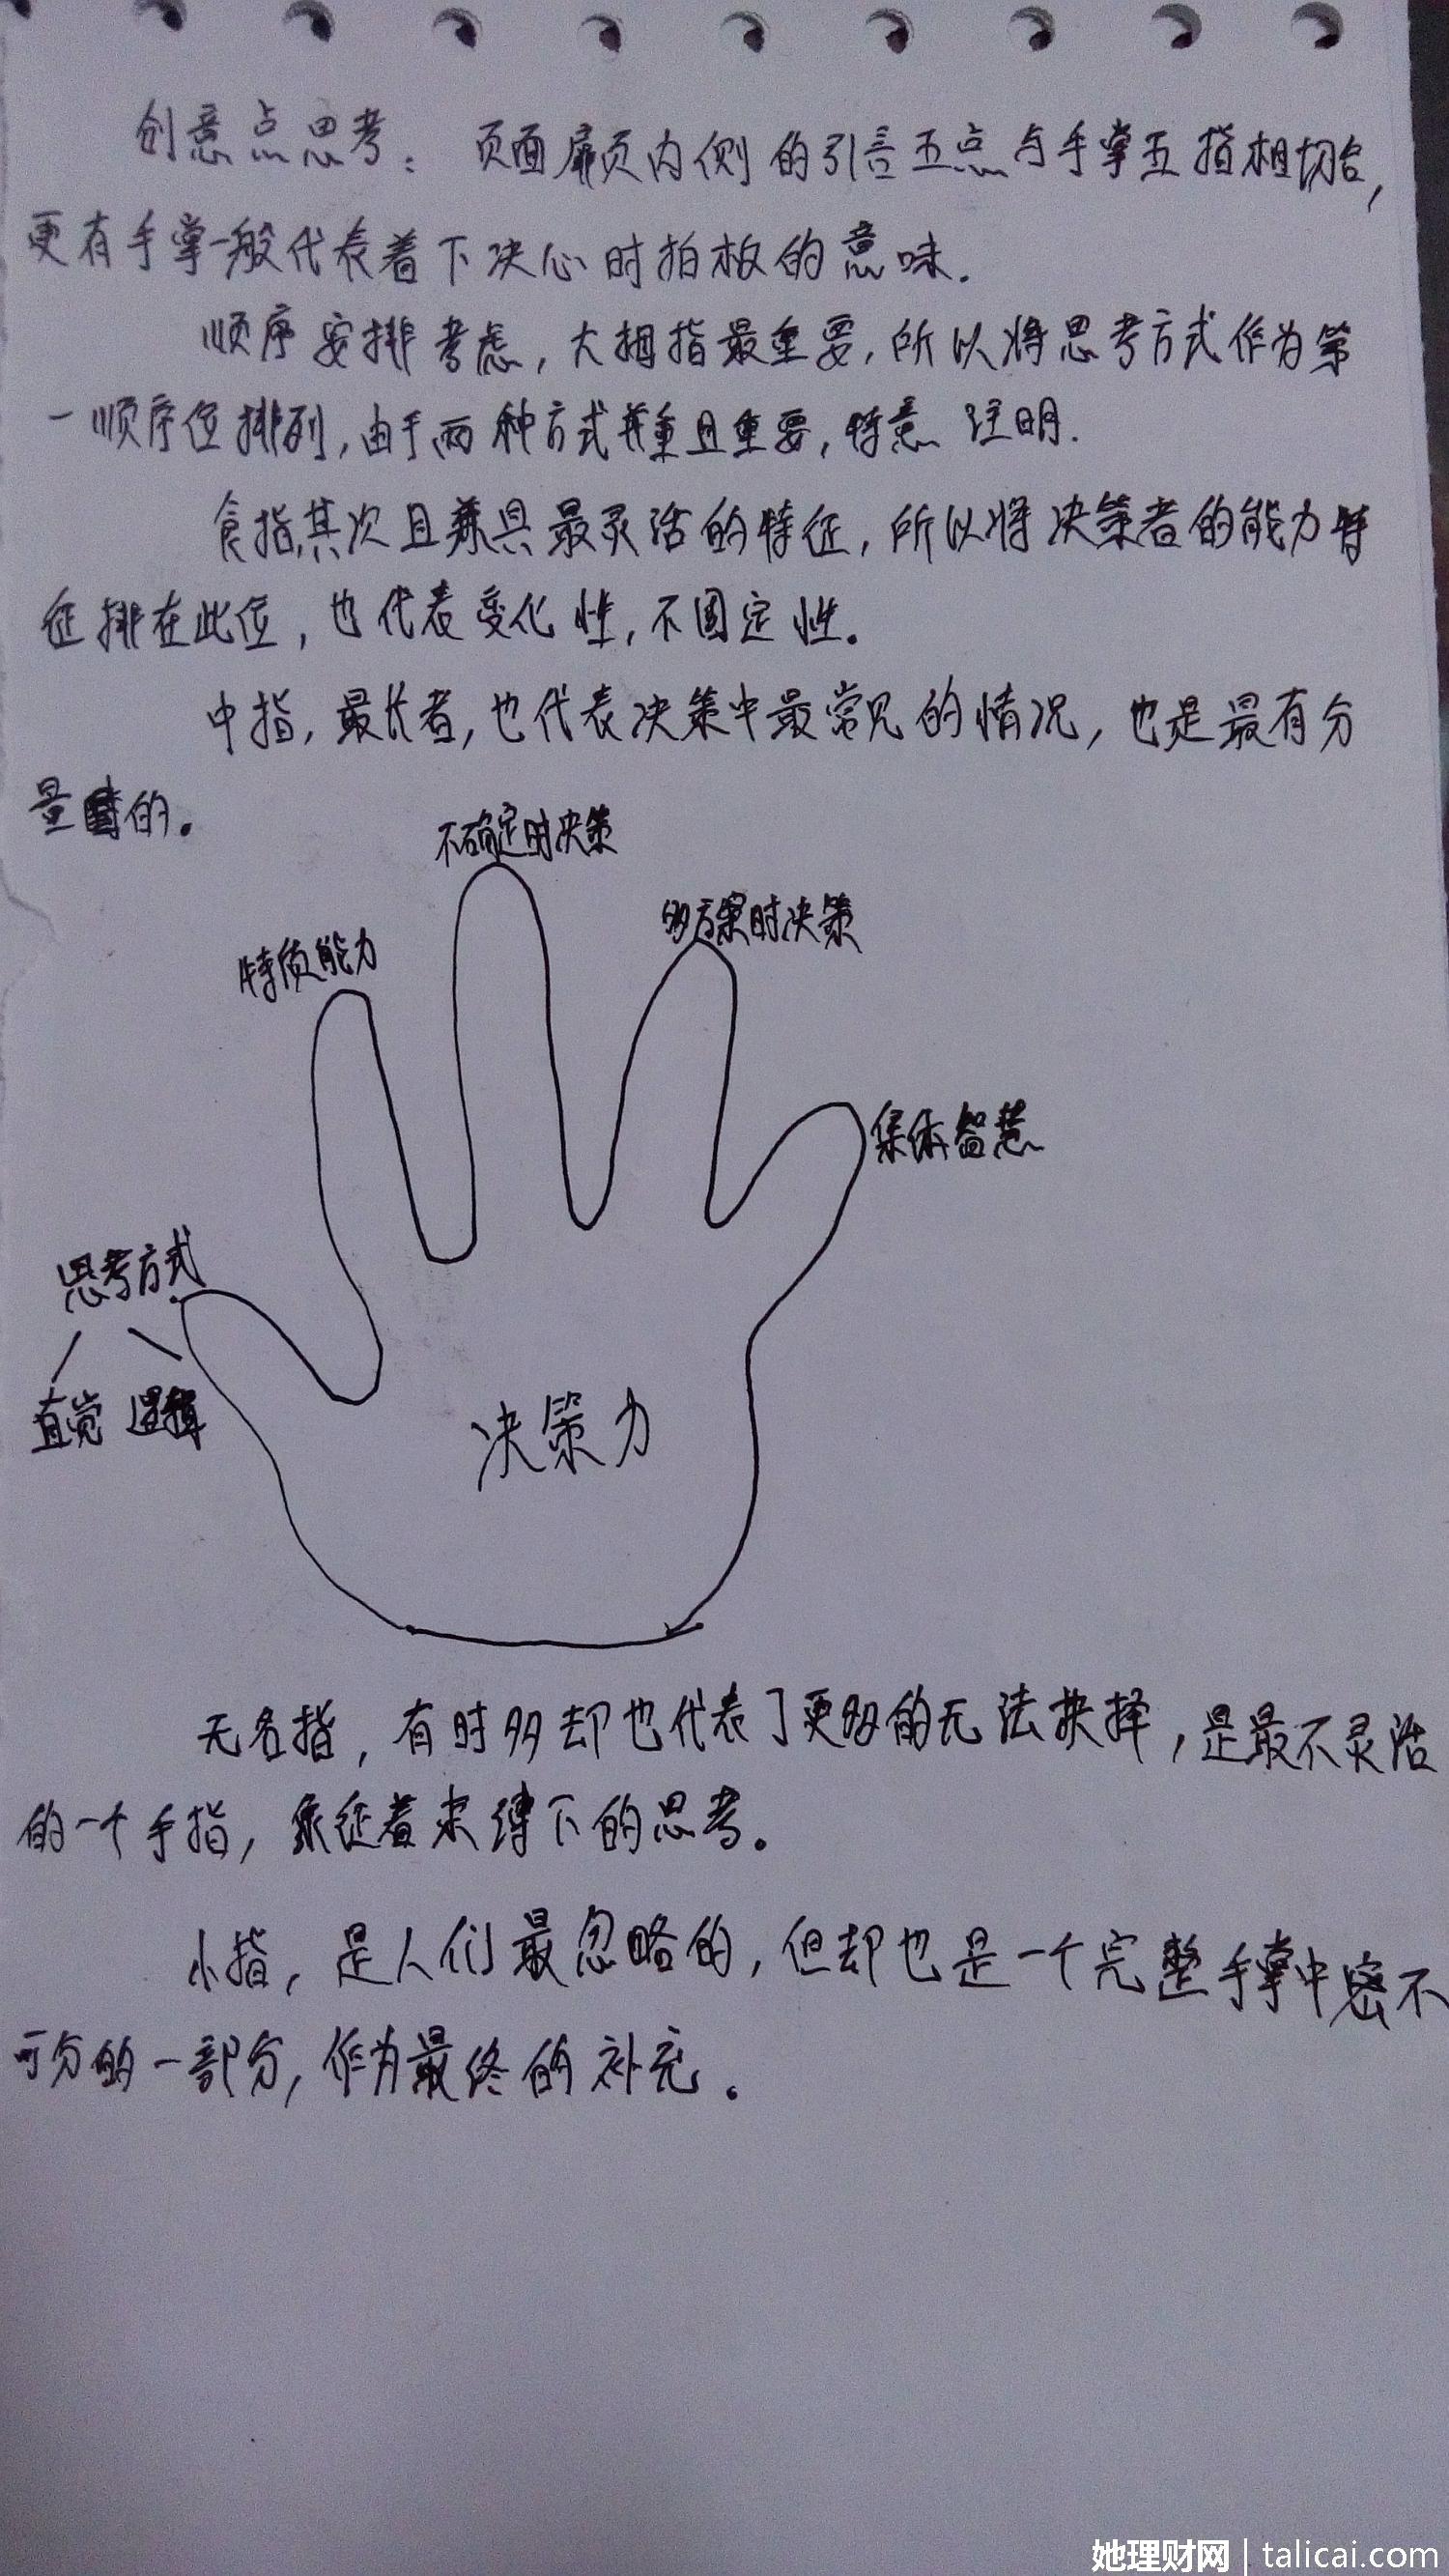 创意点思考：页面扉页内侧的引言五点与手掌五指相切合，
更有手掌一般代表着下决心时拍板的意味.
顺序安排考虑，大拇指最重要，所以将思考方式作为第
一顺序位排列，由于两种方式并重且重要，特意注明.
食指其次且兼具最灵活的特征，所以将决策者的能力特
征排在此位，也代表变化性，不固定性。
中指，最长者，也代表决策中最常见的情况，也是最有分
量的。
不确定时决策
多方案时决策
特质能力
集体智慧
思考方式
直觉 逻辑
决策力
无名指，有时多却也代表了更多的无法抉择，是最不灵活
的一个手指，象征着束缚下的思考。
小指，是人们最忽略的，但却也是一个完整手掌中密不
可分的一部分，作为最终的补充。
她理财网|talicai.com